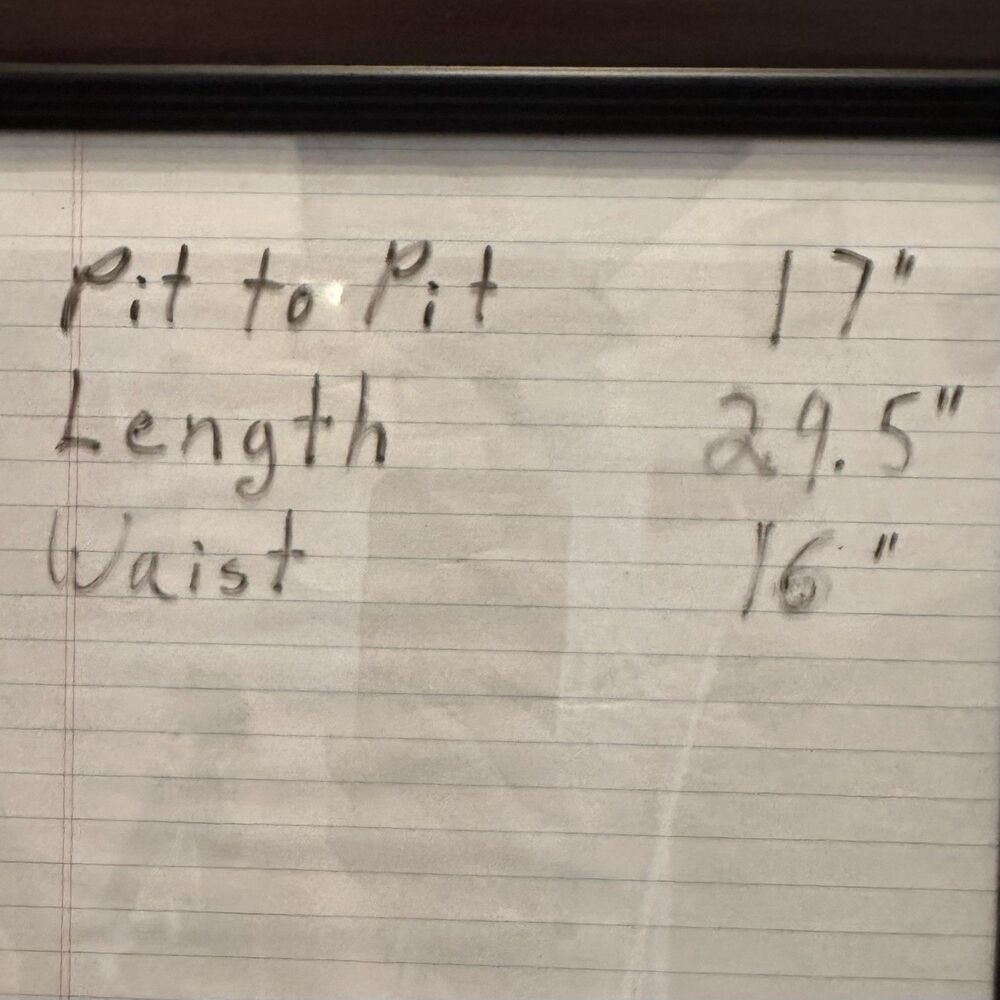 Pit to Pit 17"
Length 29.5"
Waist 16"